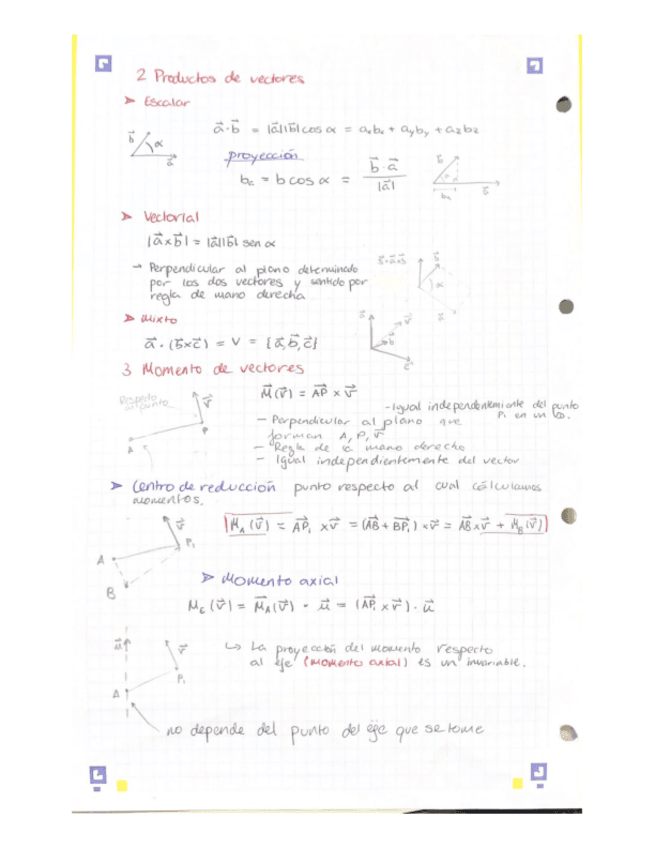 2 Productos de vectores
➤ Escalar
a⃗·b⃗ = |a⃗||b⃗| cos α = aₓbₓ + a_yb_y + a_zb_z
b⃗ α a⃗
proyección
bₐ = b cos α = b⃗·a⃗ / |a⃗|
bₐ
➤ Vectorial
|a⃗×b⃗| = |a⃗||b⃗| sen α
→ Perpendicular al plano determinado
por los dos vectores y sentido por
regla de mano derecha
➤ Mixto
a⃗·(b⃗×c⃗) = V = {a⃗,b⃗,c⃗}
3 Momento de vectores
Respecto
al punto
M⃗(v⃗) = AP⃗ × v⃗
- Igual independientemente del punto
- Perpendicular al plano que
forman A, P, v⃗
- Regla de la mano derecha
- Igual independientemente del vector
➤ Centro de reducción punto respecto al cual calculamos
momentos.
M⃗_A(v⃗) = AP⃗₁ × v⃗ = (AB⃗ + BP⃗₁) × v⃗ = AB⃗ × v⃗ + M⃗_B(v⃗)
A B P₁ v⃗
➤ Momento axial
M_C(v⃗) = M⃗_A(v⃗) · u⃗ = (AP⃗₁ × v⃗) · u⃗
u⃗ v⃗ P₁ A
↳ La proyección del momento respecto
al eje (momento axial) es un invariable.
no depende del punto del eje que se tome